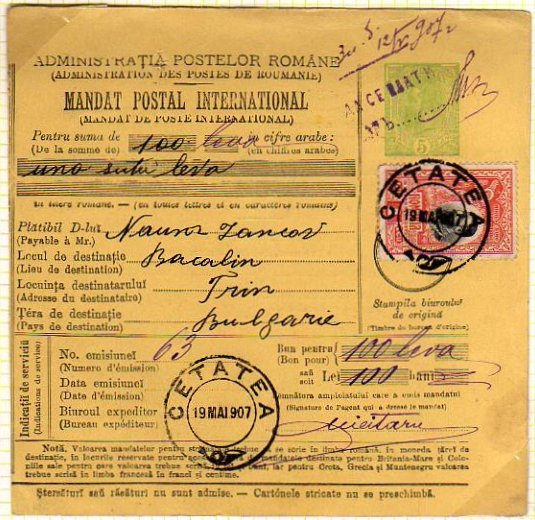 ADMINISTRAŢIA POSTELOR ROMÂNE
(ADMINISTRATION DES POSTES DE ROUMANIE)
MANDAT POSTAL INTERNAȚIONAL
(MANDAT DE POSTE INTERNATIONAL)
12/V 907
5
Pentru suma de 100 leva in cifre arabe:
(De la somme de) (en chiffres arabes)
una suta leva
in litere romane. — (en toutes lettres et en caractères romains)
Platibil D-lui Naum Iancov
(Payable à Mr.)
Locul de destinație Bacalin
(Lieu de destination)
Locuința destinatarului Trin
(Adresse du destinataire)
Téra de destinație Bulgarie
(Pays de destination)
CETATEA
19 MAI 907
Stampila biuroului
de origină
(Timbre du bureau d'origine)
Indicații de serviciŭ
(Indications de service)
No. emisiuneĭ 63
(Numéro d'émission)
Data emisiuneĭ
(Date d'émission)
Biuroul expeditor
(Bureau expéditeur)
CETATEA
19 MAI 907
Bun pentru 100 leva
(Bon pour)
saŭ Lei 100 bani
soit
semnătura amploiatului care a emis mandatul
(Signature de l'agent qui a dressé le mandat)
Notă. Valoarea mandatelor pentru străinătate se scrie în limba română, în moneta țărei de
destinație, în locurile reservate pentru mandatele destinate pentru Britania-Mare și Colo-
niile sale pentru care valoarea trebue scrisă iar pentru Creta, Grecia și Muntenegru valoarea
trebue scrisă în limba franceză în franci și centime.
Ștersături saŭ răsături nu sunt admise. — Cartónele stricate nu se preschimbă.